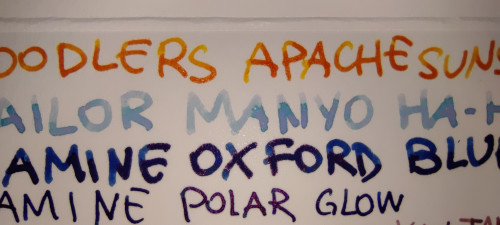 OODLERS APACHE SUNS
AILOR MANYO HA-H
AMINE OXFORD BLUE
AMINE POLAR GLOW